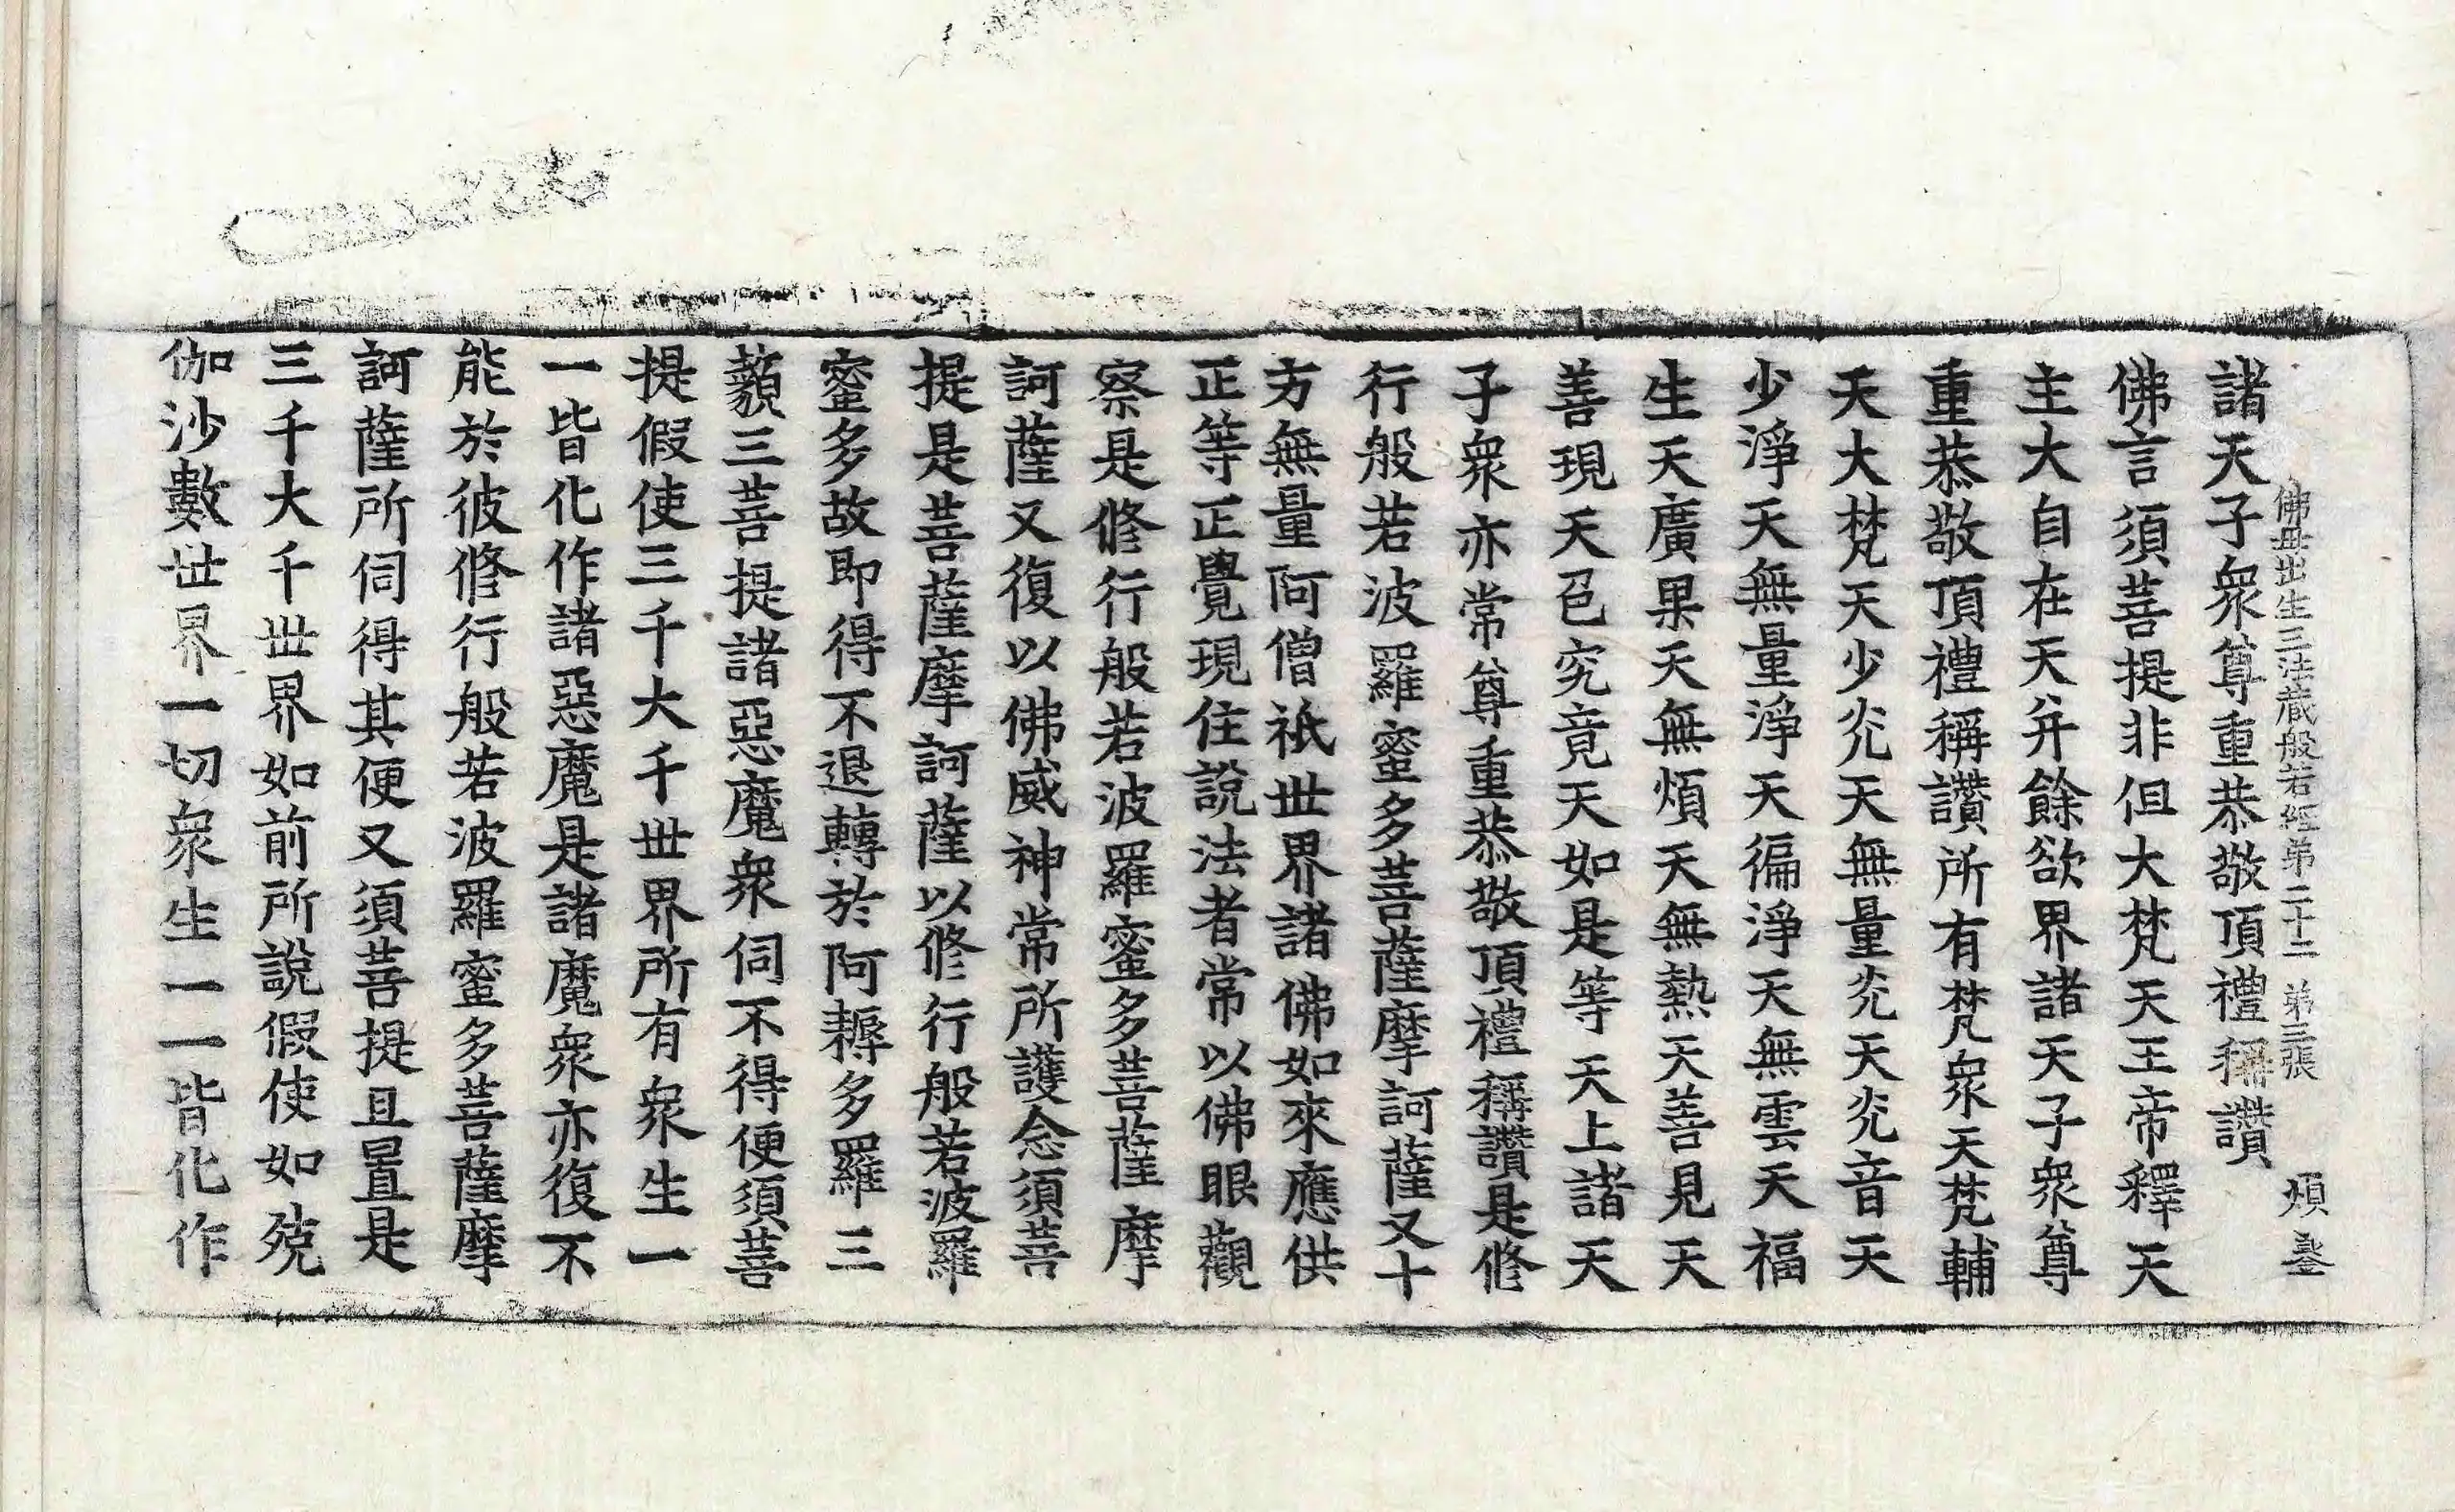 佛母出生三法藏般若經第二十二　第三張　煩
諸天子衆尊重恭敬頂禮稱讚
佛言須菩提非但大梵天王帝釋天
主大自在天并餘欲界諸天子衆尊
重恭敬頂禮稱讚所有梵衆天梵輔
天大梵天天少光天無量光天光音天
少淨天無量淨天徧淨天無雲天福
生天廣果天無煩天無熱天善見天
善現天色究竟天如是等天上諸天
子衆亦常尊重恭敬頂禮稱讚是修
行般若波羅蜜多菩薩摩訶薩又十
方無量阿僧祇世界諸佛如來應供
正等正覺現住說法者常以佛眼觀
察是修行般若波羅蜜多菩薩摩
訶薩又復以佛威神常所護念須菩
提是菩薩摩訶薩以修行般若波羅
蜜多故即得不退轉於阿耨多羅三
藐三菩提諸惡魔衆伺不得便須菩
提假使三千大千世界所有衆生一
一皆化作諸惡魔是諸魔衆亦復不
能於彼修行般若波羅蜜多菩薩摩
訶薩所伺得其便又須菩提且置是
三千大千世界如前所說假使如殑
伽沙數世界一切衆生一一皆化作